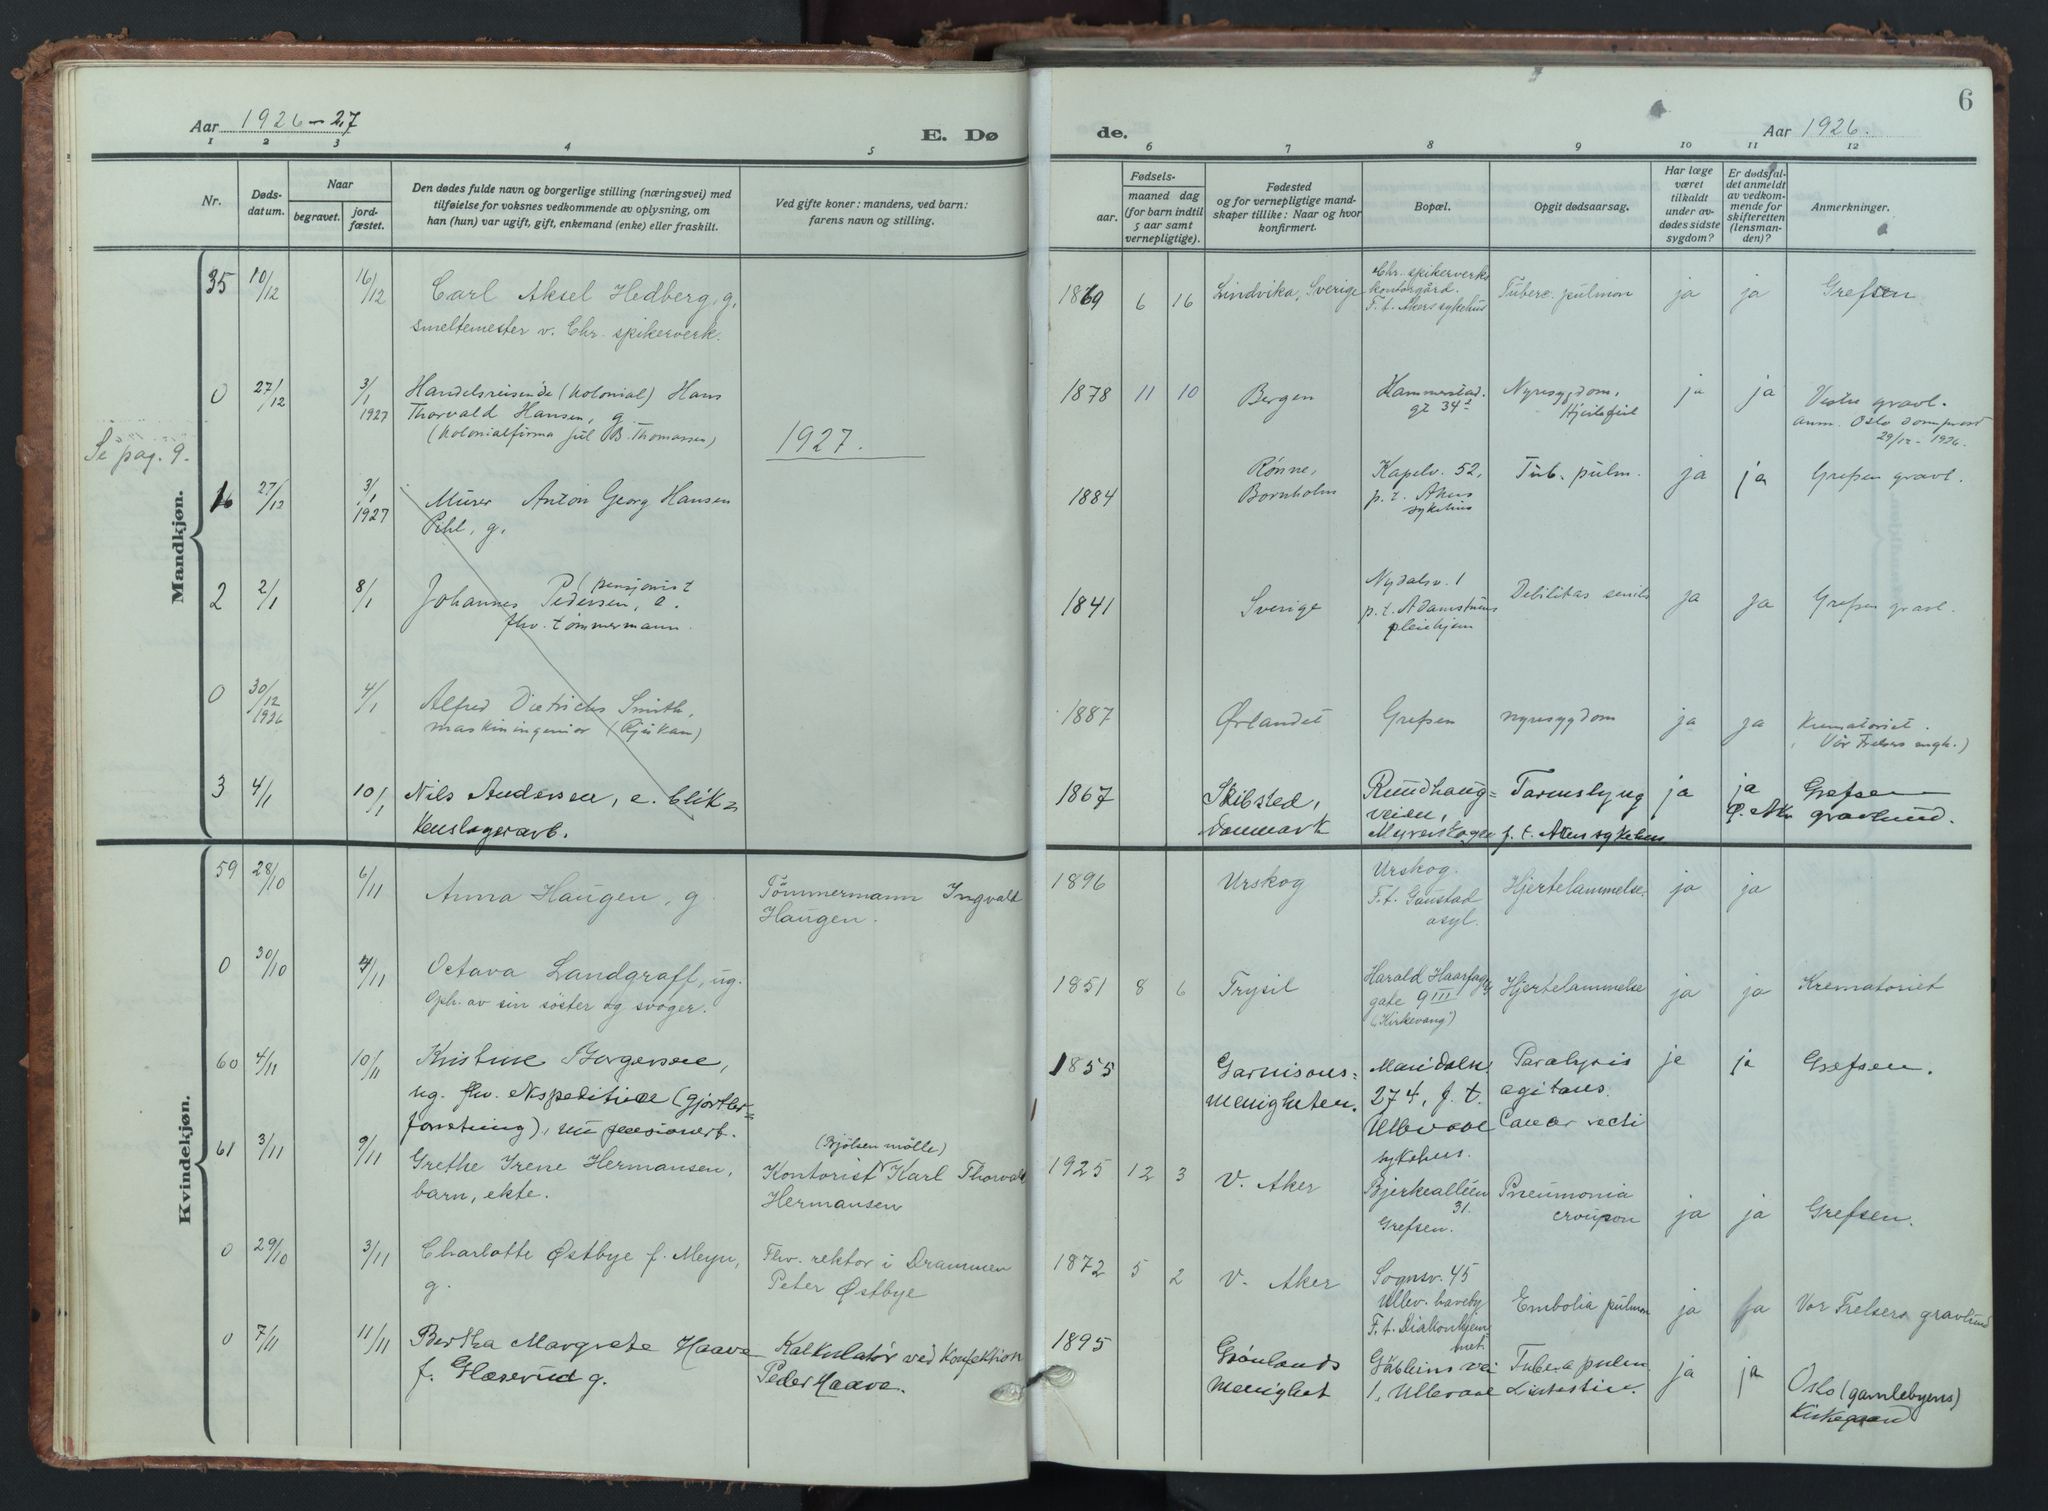 Aar 1926-27
E. Dø
de.
Aar 1926.
6
1 2 3 4 5 6 7 8 9 10 11 12
Nr.
Døds-
datum.
Naar
begravet.
jord-
fæstet.
Den dødes fulde navn og borgerlige stilling (næringsvei) med
tilføielse for voksnes vedkommende av oplysning, om
han (hun) var ugift, gift, enkemand (enke) eller fraskilt.
Ved gifte koner: mandens, ved barn:
farens navn og stilling.
Fødsels-
aar.
maaned dag
(for barn indtil
5 aar samt
vernepligtige).
Fødested
og for vernepligtige mand-
skaper tillike: Naar og hvor
konfirmert.
Bopæl.
Opgit dødsaarsag.
Har læge
været
tilkaldt
under av-
dødes sidste
sygdom?
Er dødsfal-
det anmeldt
av vedkom-
mende for
skifteretten
(lensman-
den)?
Anmerkninger.
Mandkjøn.
35 10/12 16/12 Carl Aksel Hedberg, g,
smeltemester v. Chr. spikerverk.
1869 6 16 Lindvika, Sverige
Chr. spikerverks
kontorgård.
F. t. Akers sykehus
Tuberc. pulmon ja ja Grefsen
0 27/12 3/1 1927 Handelsreisende (Kolonial) Hans
Thorvald Hansen, g
(Kolonialfirma Jul B. Thomassen)
1878 11 10 Bergen
Hammerstad.
gt 34
Nyresygdom,
Hjertefeil
ja ja Vestre gravl.
anm. Oslo domprost
29/12 - 1926.
1927.
Se pag. 9.
16 27/12 3/1 1927 Murer Anton Georg Hansen
Pihl, g,
1884 Rønne,
Bornholm
Kapelv. 52,
p. t. Akers
sykehus
Tub. pulm. ja ja Grefsen gravl.
2 2/1 8/1 Johannes Pedersen, e. pensjonist
fhv. tömmermann.
1841 Sverige
Nydalsv. 1
p. t. Adamstuens
pleiehjem
Debilitas senilis ja ja Grefsen gravl.
0 30/12 1926 4/1 Alfred Dietrichs Smith,
maskiningeniør (Rjukan)
1887 Ørlandet Grefsen nyresygdom ja ja Krematoriet.
(Vår Frelsers gravl.)
3 4/1 10/1 Nils Andersen, e. blik=
kenslagerarb.
1867 Skibsted,
Danmark
Rundhaug=
veien,
Myrerskogen
Tarmslyng
f. t. Akers sykehus
ja ja
Grefsen
gravlund.
Kvindekjøn.
59 28/10 6/11 Anna Haugen, g. Tömmermann Ingvald
Haugen.
1896 Urskog
Urskog.
F. t. Gaustad
asyl.
Hjertelammelse. ja ja
0 30/10 4/11 Octava Landgraff, ug.
Oph. av sin söster og svoger.
1851 8 6 Trysil
Harald Haarfagres
gate 9 III
("Kirkevang")
Hjertelammelse ja ja Krematoriet
60 4/11 10/11 Kristine Borgersen,
ug. fhv. ekspeditrice (gjørtler=
forretning), nu pensionert.
1855 Garnisons=
menigheten.
Maridalsv.
274, f. t.
Ullevaal
sykehus.
Paralysis
agitans.
Cancer recti
ja ja Grefsen.
61 3/11 9/11 Grethe Irene Hermansen,
barn, ekte.
(Bjölsen mölle)
Kontorist Karl Thorvald
Hermansen
1925 12 3 V. Aker
Bjerkealléen
31.
Grefsen.
Pneumonia
croupon
ja ja Grefsen.
0 29/10 3/11 Charlotte Østbye f. Meyn,
g.
Fhv. rektor i Drammen
Peter Østbye
1872 5 2 V. Aker
Sognsv. 45
Ullev. haveby
F. t. Diakonhjem-
met.
Embolia pulmon ja ja Vor Frelsers gravlund
0 7/11 11/11 Bertha Margrete Haave
f. Glæserud g.
Kalkulatør ved Konfektion
Peder Haave.
1895 Grønlands
menighet
vei
1, Ullevaal
Tuberc pulm.
ja ja
Oslo (gamlebyens)
Kirkegaard